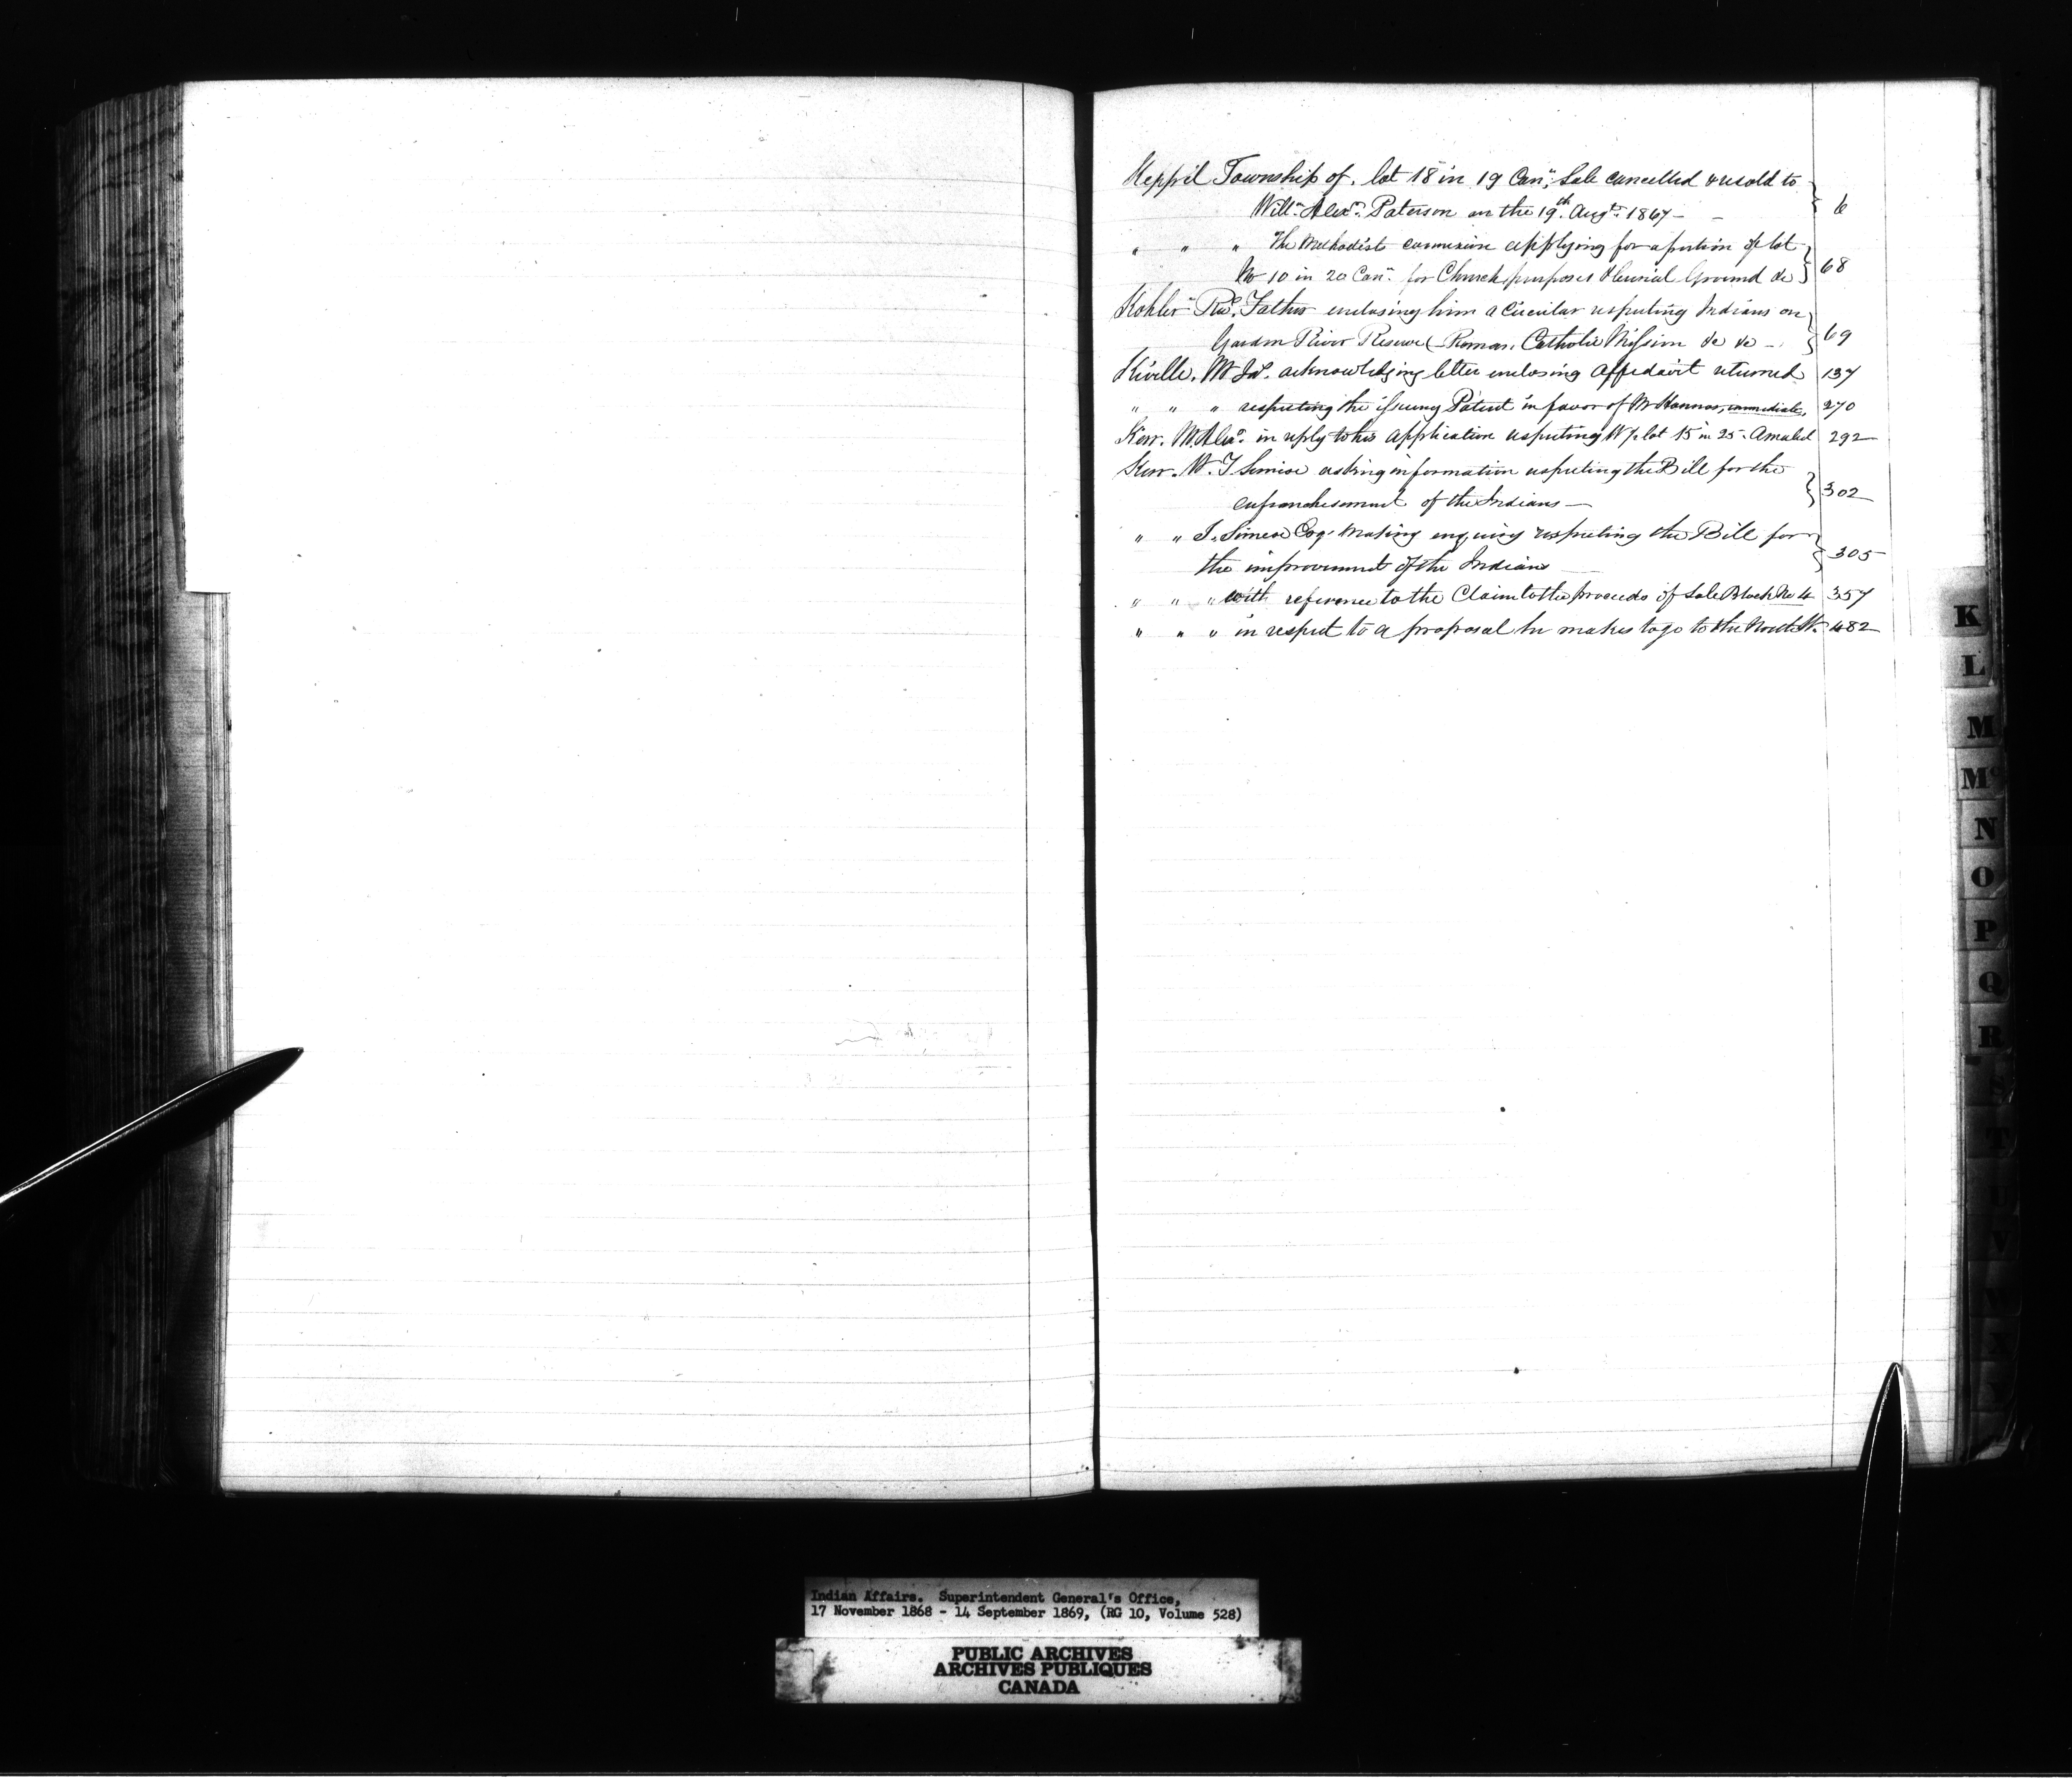 Keppel Township of. lot 18 in 19 Con; Sale cancelled & resold to
Willm Alexr. Paterson on the 19th Augt. 1867 — — 6
" " " The Methodist connexion applying for a portion of lot
No 10 in 20 Con. for Church purposes & burial Ground &c 68
Kohler Revd. Father enclosing him a Circular respecting Indians on
Garden River Reserve (Roman Catholic Mission &c &c — 69
Kivelle. Mr Jas. acknowledging letter enclosing affidavit returned 137
" " " respecting the issuing Patent in favor of Mr Hannas, 270
Kerr. Mr Alexr. in reply to his application respecting W ½ lot 15 in 25. Amabel 292
Kerr. W. J Simcoe asking information respecting the Bill for the
enfranchisement of the Indians — 302
" " J. Simcoe Esqr making enquiry respecting the Bill for
the improvement of the Indians — 305
" " " with reference to the Claim to the proceeds of Sale Block No 4 357
" " " in respect to a proposal he makes to go to the North W. 482
K
L
M
Mc
N
O
P
Q
R
S
T
U
V
W
X
Y
Indian Affairs. Superintendent General's Office,
17 November 1868 - 14 September 1869, (RG 10, Volume 528)
PUBLIC ARCHIVES
ARCHIVES PUBLIQUES
CANADA